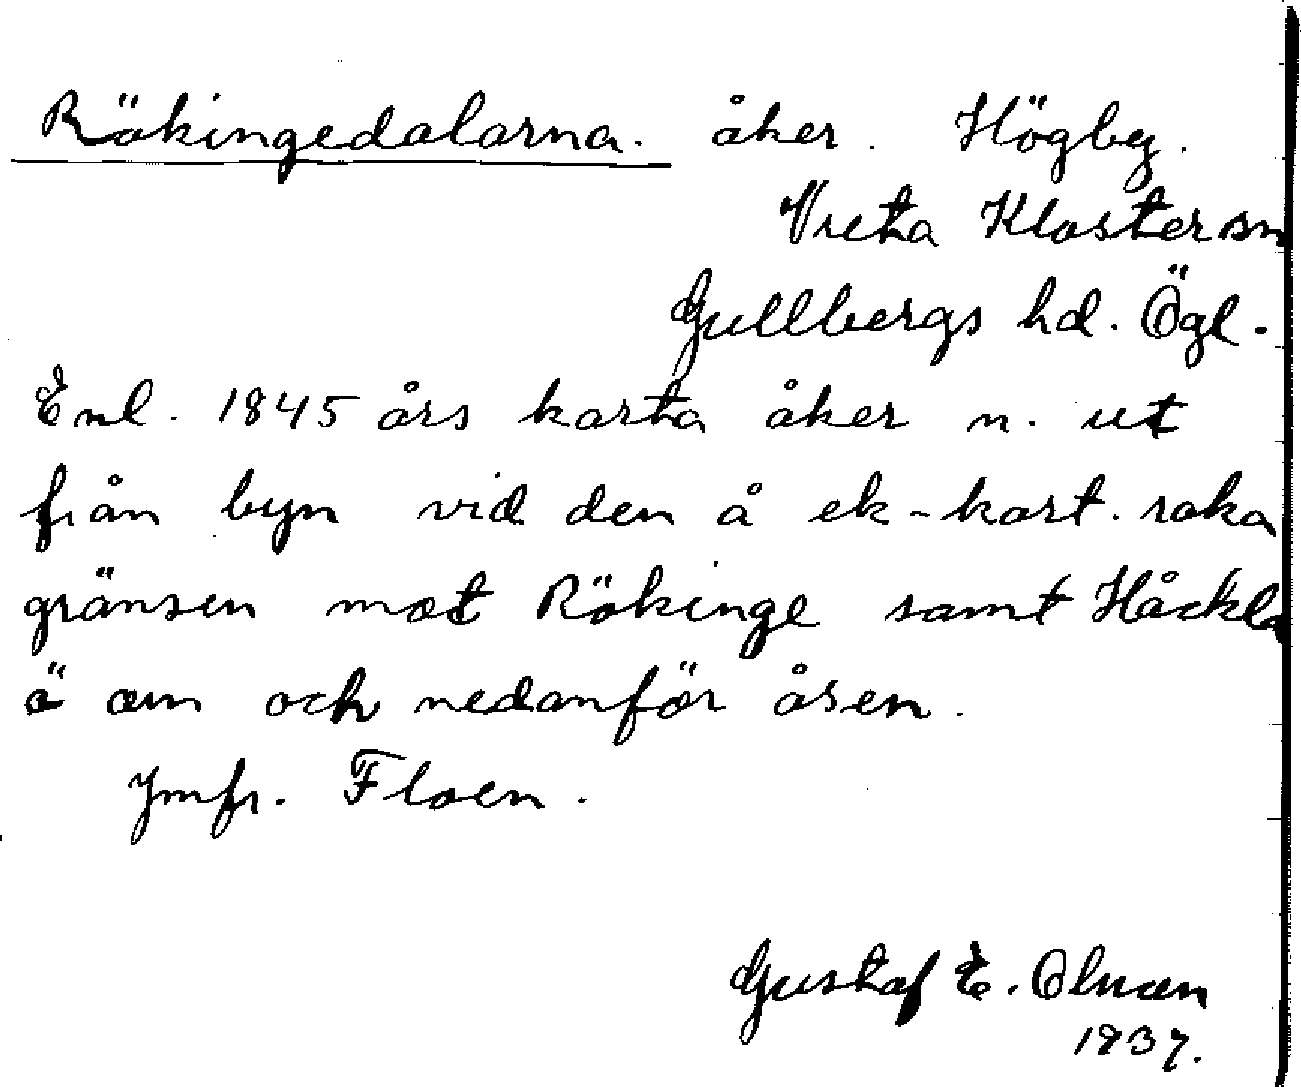 Rökingedalarna. åker. Högby.
Vreta Kloster sn
Gullbergs hd. Ögl.
Enl. 1845 års karta åker n. ut
från byn vid den å ek-kart. raka
gränsen mot Rökinge samt Håckla
ö om och nedanför åsen.
Jmfr. Floen.
Gustaf E.
1937.